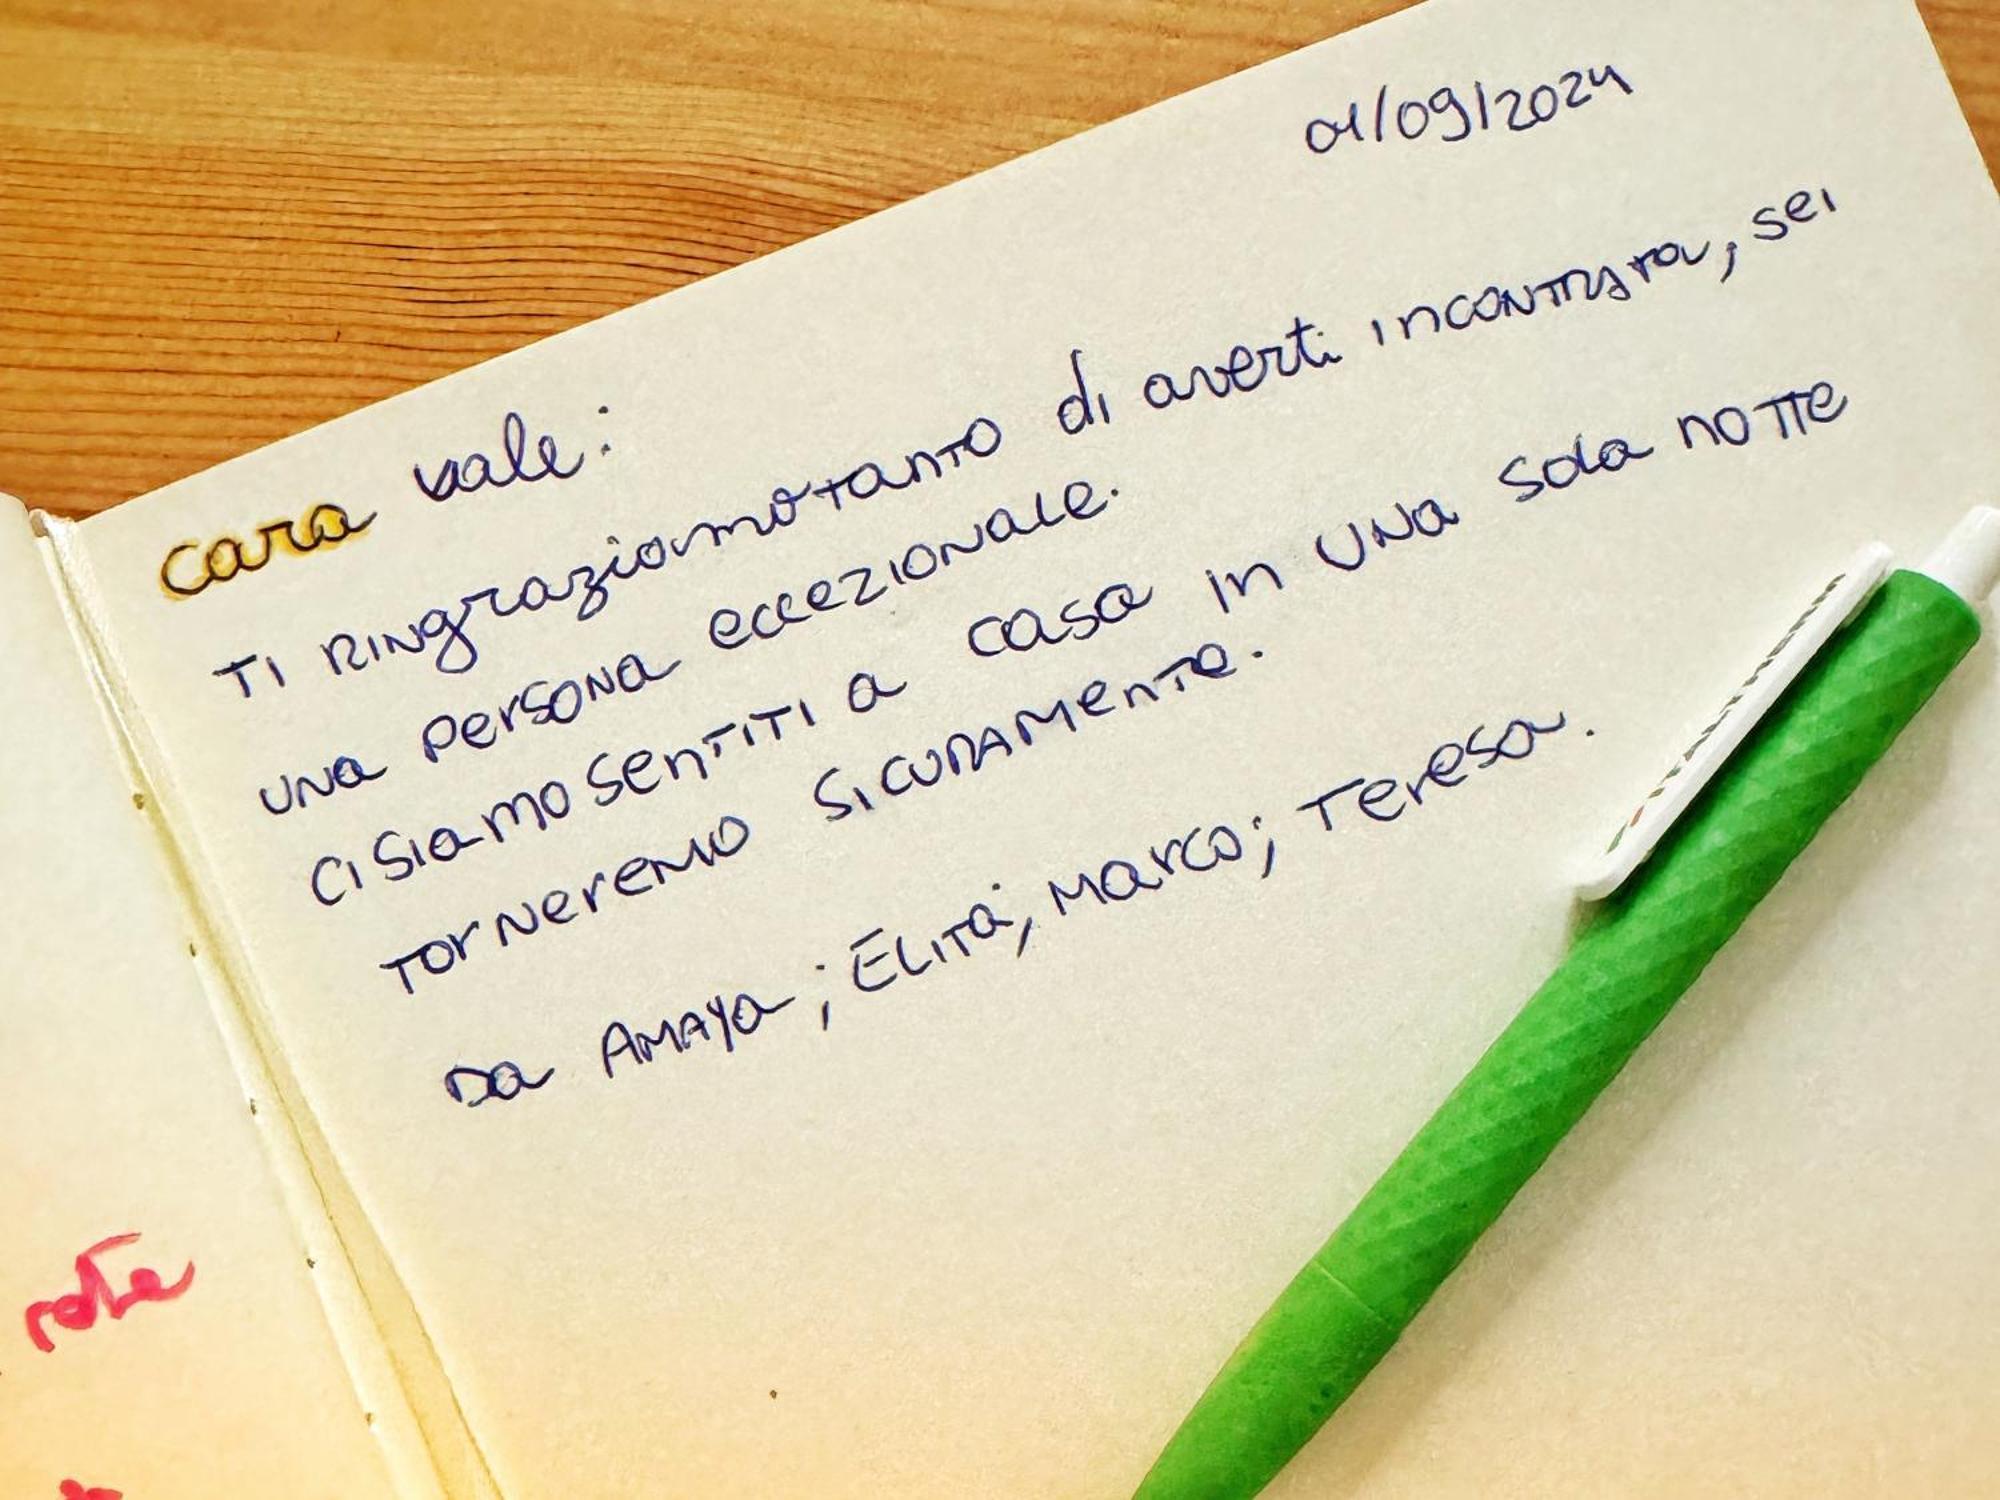 01/09/2024
cara vale:
TI RINgraziamo tanto di averti incontrata, sei
una persona eccezionale.
ci siamo sentiti a casa in una sola notte
torneremo sicuramente.
Da Amaya; Elita, Marco; Teresa.